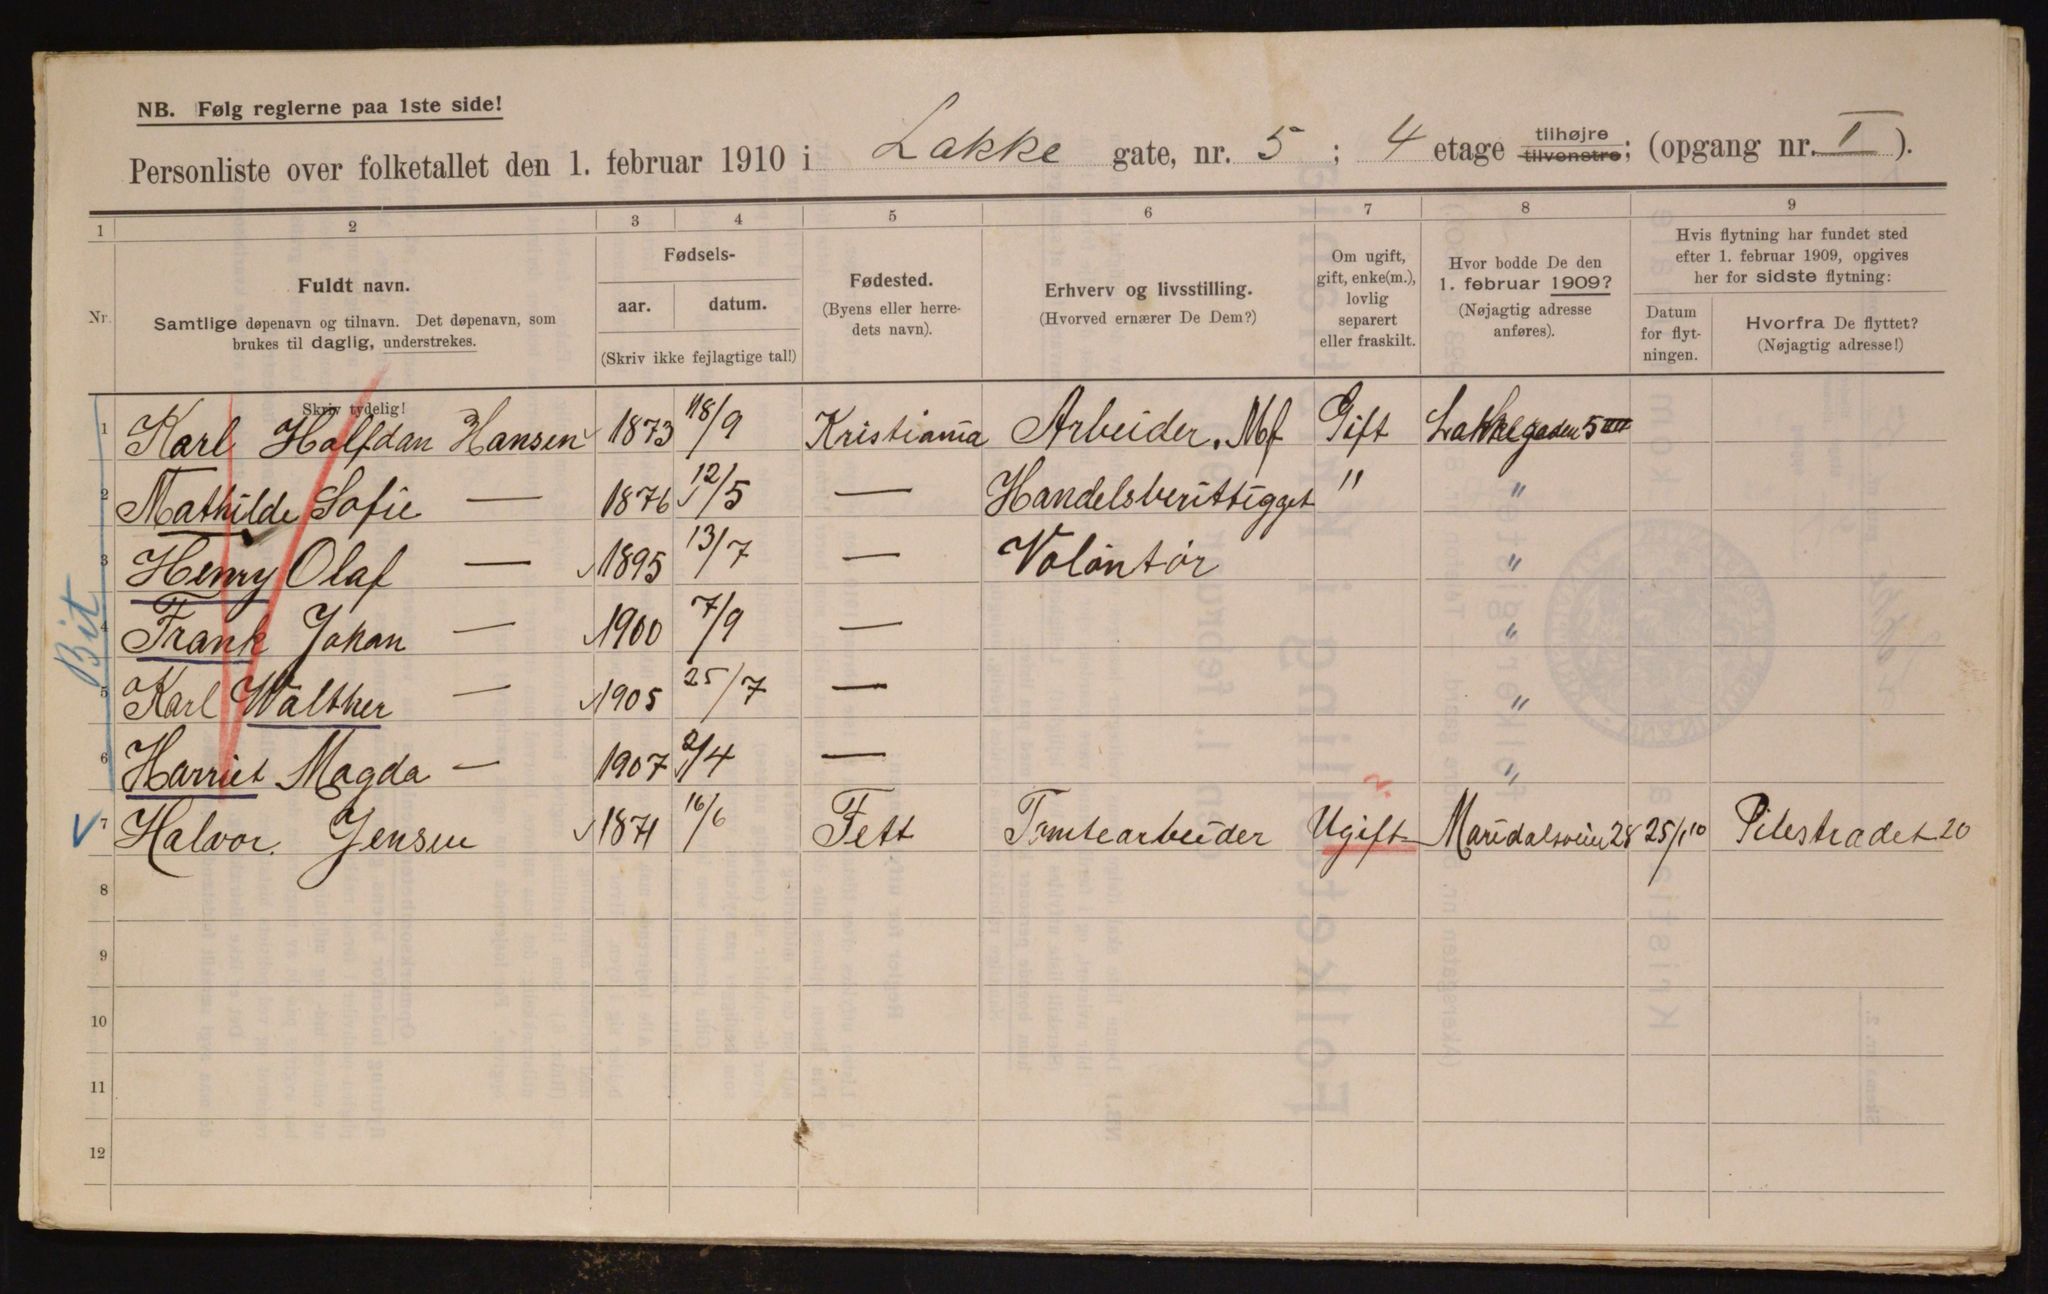 NB. Følg reglerne paa 1ste side!
Personliste over folketallet den 1. februar 1910 i Lakke gate, nr. 5 ; 4 etage tilhøjre tilvenstre; (opgang nr. I ).
1 2 3 4 5 6 7 8 9
Nr.
Fuldt navn.
Samtlige døpenavn og tilnavn. Det døpenavn, som
brukes til daglig, understrekes.
Skriv tydelig!
Fødsels-
aar. datum.
(Skriv ikke fejlagtige tal!)
Fødested.
(Byens eller herre-
dets navn).
Erhverv og livsstilling.
(Hvorved ernærer De Dem?)
Om ugift,
gift, enke(m.),
lovlig
separert
eller fraskilt.
Hvor bodde De den
1. februar 1909?
(Nøjagtig adresse
anføres).
Hvis flytning har fundet sted
efter 1. februar 1909, opgives
her for sidste flytning:
Datum
for flyt-
ningen.
Hvorfra De flyttet?
(Nøjagtig adresse!)
1 Karl Halfdan Hansen 1873 18/9 Kristiania Arbeider. Mf Gift Lakkegaden 5 III
2 Mathilde Sofie — 1876 12/5 — Handelsberittigget " "
3 Henry Olaf — 1895 13/7 — Volontør "
4 Frank Johan — 1900 7/9 — "
5 Karl Walther — 1905 25/7 — "
6 Harriet Magda — 1907 2/4 — "
7 Halvor Jensen 1871 16/6 Fett Tomtearbeider Ugift Maridalsveien 28 25/1 10 Pilestradet 20
8
9
10
11
12
Bit